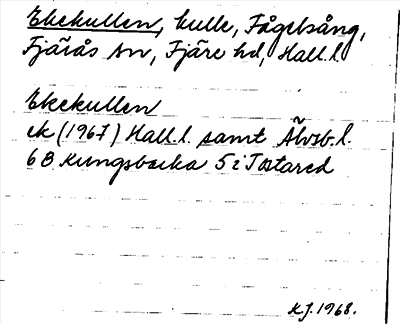 Ekekullen, kulle, Fågelsång,
Fjärås sn, Fjäre hd, Hall.l.
Ekekullen
ek (1967) Hall.l. samt Älvsb.l.
6B Kungsbacka 5i Tostared
K.J. 1968.